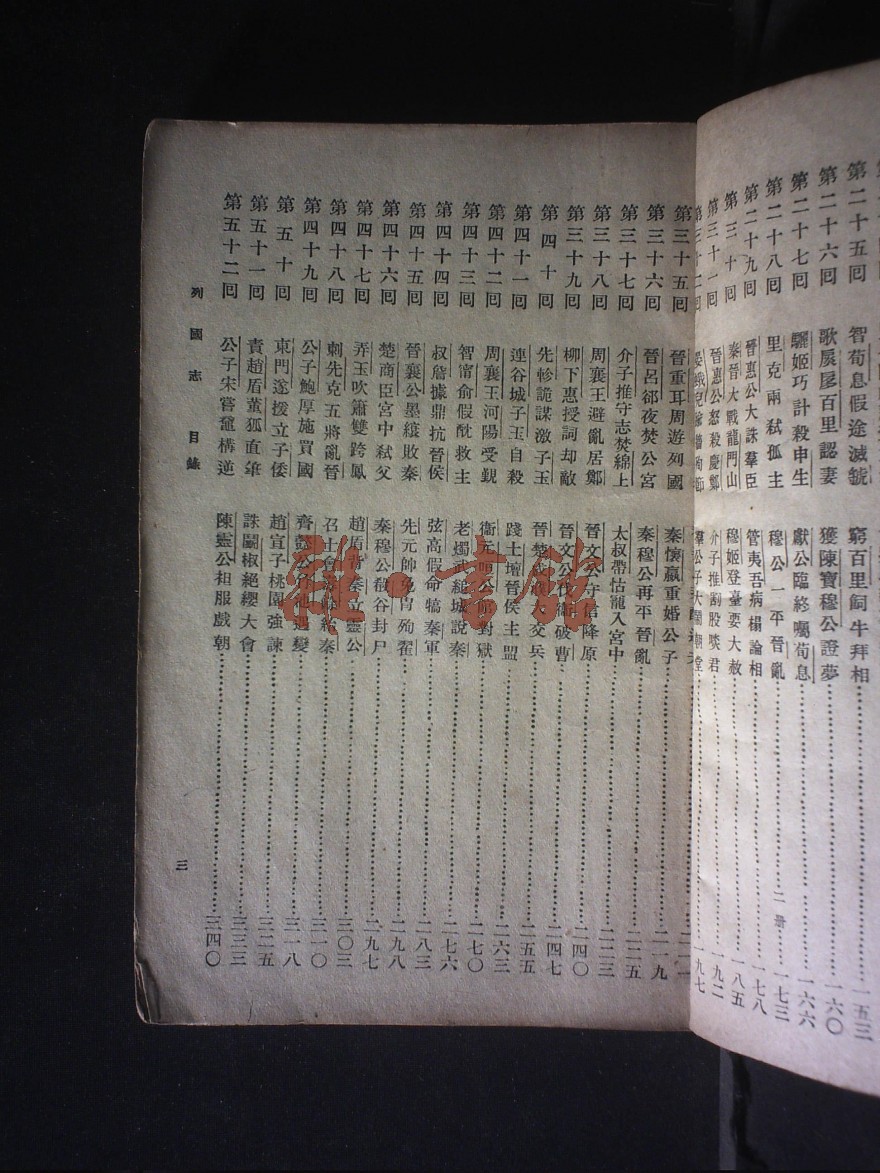 第二十五回 智荀息假途滅虢 窮百里飼牛拜相 一五三
第二十六回 歌扊扅百里認妻 獲陳寶穆公證夢 一六〇
第二十七回 驪姬巧計殺申生 獻公臨終囑荀息 一六六
第二十八回 里克兩弒孤主 穆公一平晉亂 一七三
二册
第二十九回 晉惠公大誅羣臣 管夷吾病榻論相 一七八
第三十回 秦晉大戰龍門山 穆姬登臺要大赦 一八五
第三十一回 晉惠公怒殺慶鄭 介子推割股啖君 一九二
第三十二回 晏蛾兒踰牆殉節 羣公子大鬧朝堂 一九七
第三十五回 晉重耳周遊列國 秦懷嬴重婚公子
第三十六回 晉呂郤夜焚公宮 秦穆公再平晉亂 二一九
第三十七回 介子推守志焚綿上 太叔帶怙龍入宮中 二二五
第三十八回 周襄王避亂居鄭 晉文公守信降原 二三三
第三十九回 柳下惠授詞却敵 晉文公伐衛破曹 二四〇
第四十回 先軫詭謀激子玉 晉楚城濮大交兵 二四七
第四十一回 連谷城子玉自殺 踐土壇晉侯主盟 二五五
第四十二回 周襄王河陽受覲 衞元咺公館對獄 二六三
第四十三回 智甯俞假酖救主 老燭武縋城說秦 二七〇
第四十四回 叔詹據鼎抗晉侯 弦高假命犒秦軍 二七六
第四十五回 晉襄公墨縗敗秦 先元帥免冑殉翟 二八三
第四十六回 楚商臣宮中弒父 秦穆公殽谷封尸 二九八
第四十七回 弄玉吹簫雙跨鳳 趙盾背秦立靈公 二九七
第四十八回 刺先克五將亂晉 召士會壽餘紿秦 三〇三
第四十九回 公子鮑厚施買國 齊懿公竹池遇變 三一〇
第五十回 東門遂援立子倭 趙宣子桃園強諫 三一八
第五十一回 責趙盾董狐直筆 誅鬭椒絕纓大會 三二五
第五十二回 公子宋嘗黿構逆 陳靈公袒服戲朝 三三三
三四〇
列國志 目錄
三
雜·書館